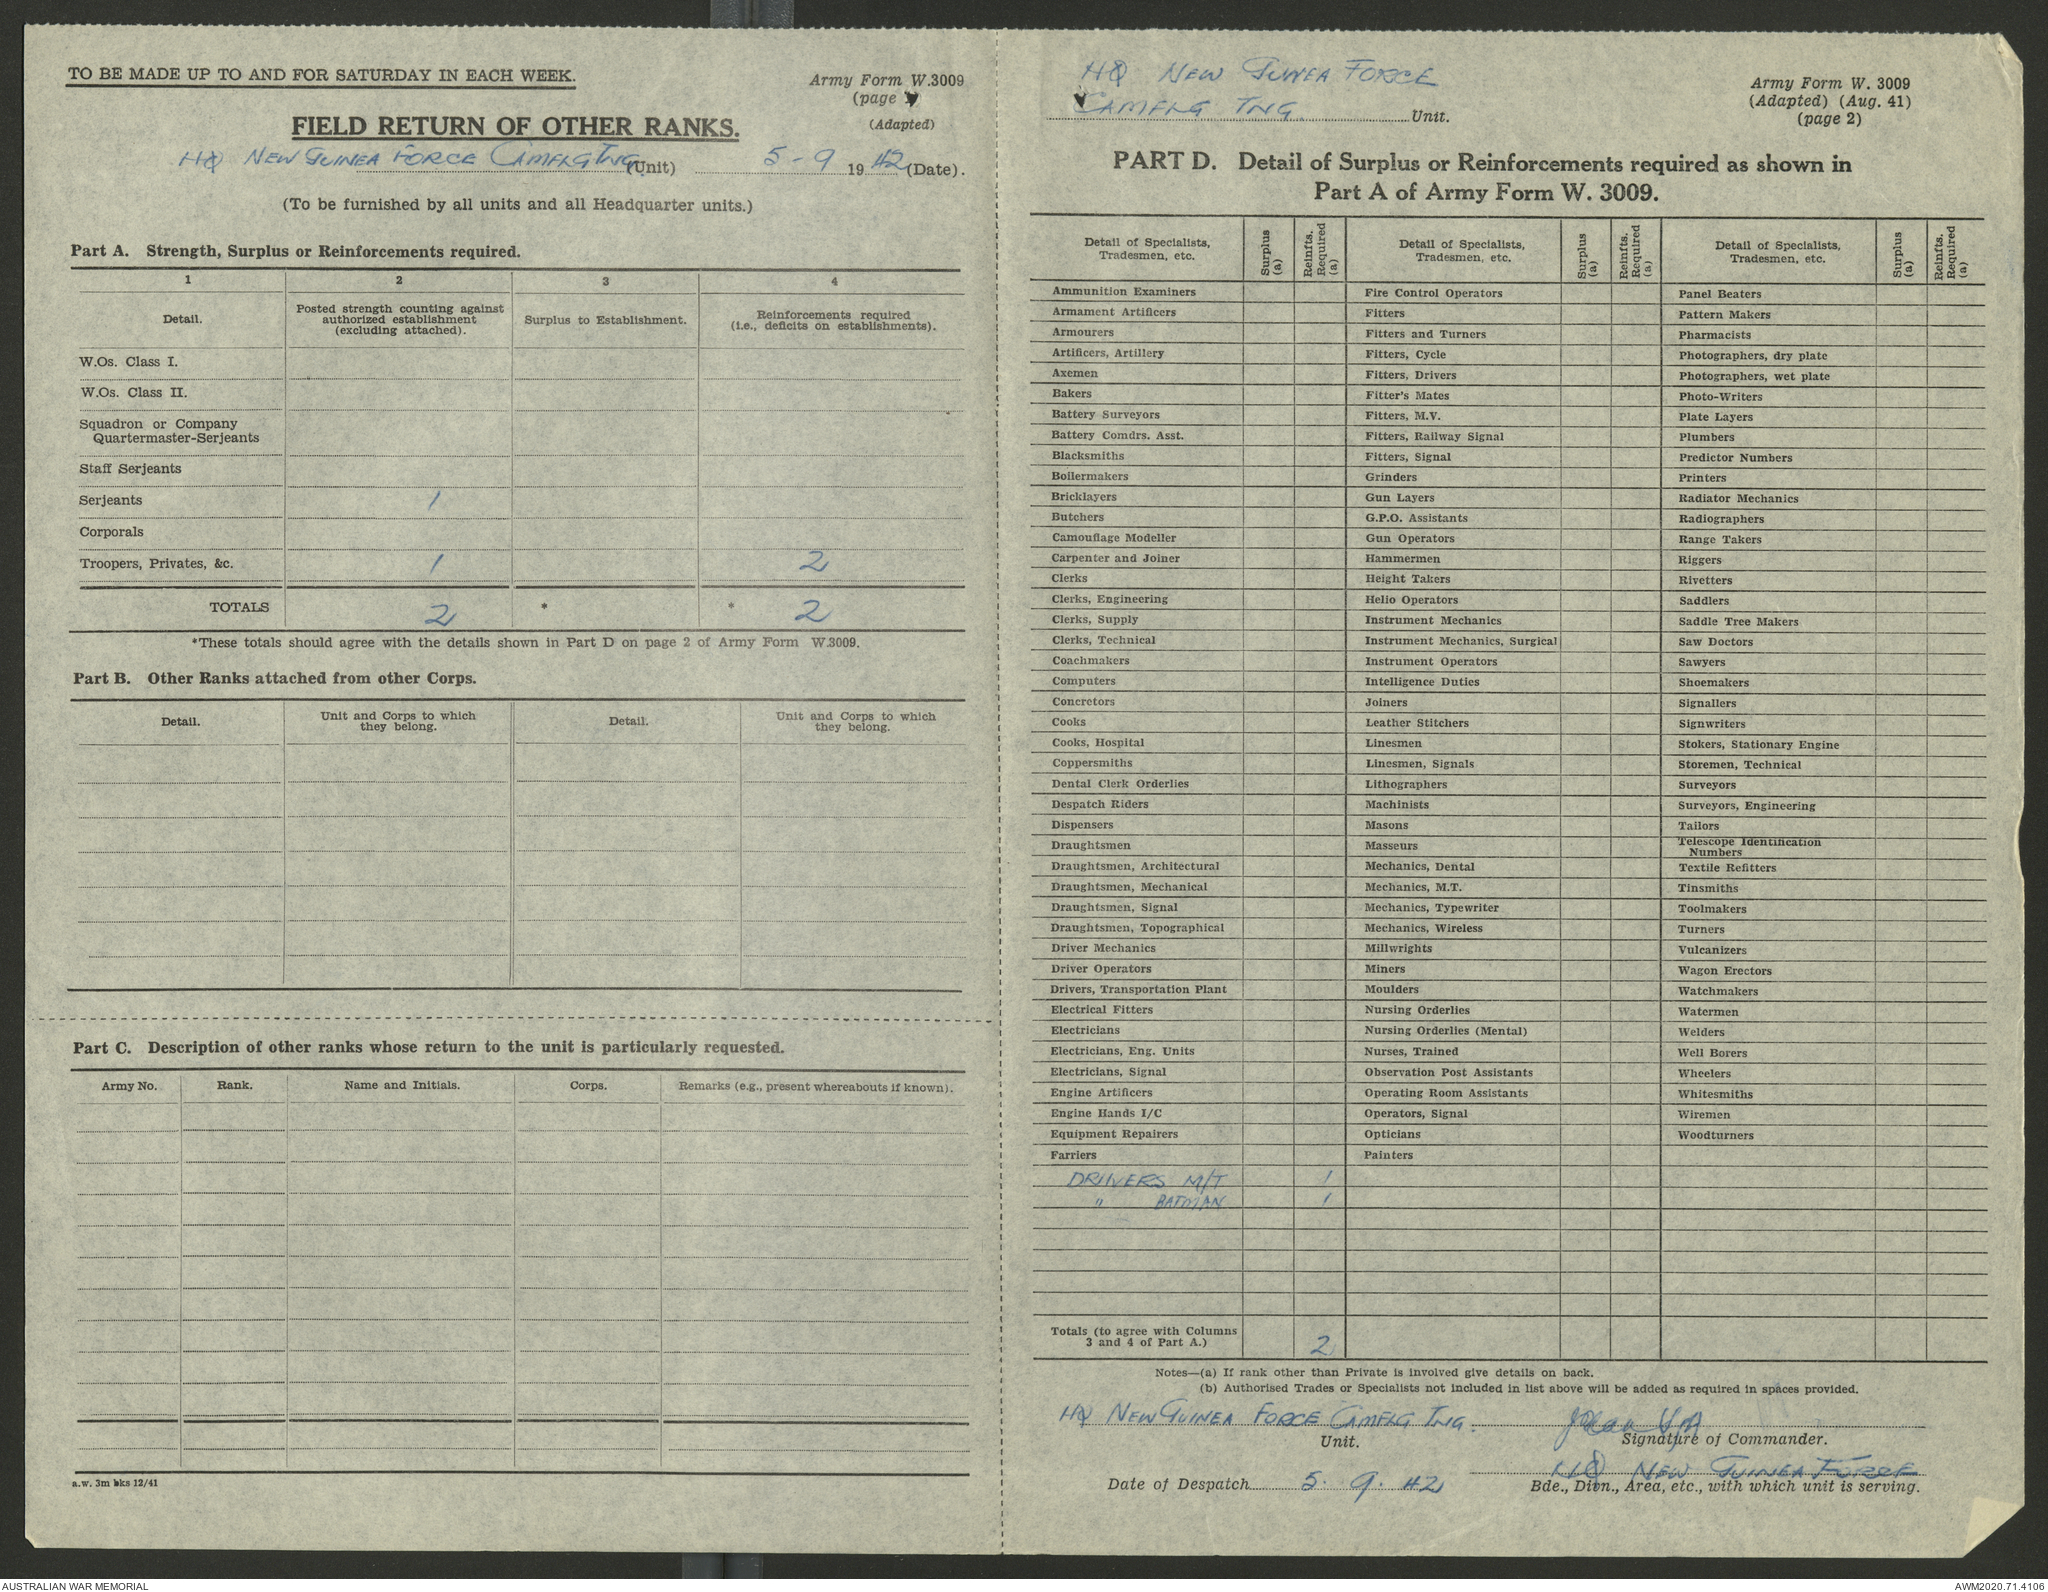 TO BE MADE UP TO AND FOR SATURDAY IN EACH WEEK.
Army Form W.3009
(page 1)
(Adapted)
FIELD RETURN OF OTHER RANKS.
HQ NEW GUINEA FORCE CAMFLG TNG (Unit) 5-9 1942 (Date).
(To be furnished by all units and all Headquarter units.)
Part A. Strength, Surplus or Reinforcements required.
1 2 3 4
Detail.
Posted strength counting against
authorized establishment
(excluding attached).
Surplus to Establishment.
Reinforcements required
(i.e., deficits on establishments).
W.Os. Class I.
W.Os. Class II.
Squadron or Company
Quartermaster-Serjeants
Staff Serjeants
Serjeants 1
Corporals
Troopers, Privates, &c. 1 2
TOTALS 2 * * 2
*These totals should agree with the details shown in Part D on page 2 of Army Form W.3009.
Part B. Other Ranks attached from other Corps.
Detail.
Unit and Corps to which
they belong.
Detail.
Unit and Corps to which
they belong.
Part C. Description of other ranks whose return to the unit is particularly requested.
Army No. Rank. Name and Initials. Corps. Remarks (e.g., present whereabouts if known).
a.w. 3m bks 12/41
HQ NEW GUINEA FORCE
CAMFLG TNG Unit.
Army Form W. 3009
(Adapted) (Aug. 41)
(page 2)
PART D. Detail of Surplus or Reinforcements required as shown in
Part A of Army Form W. 3009.
Detail of Specialists,
Tradesmen, etc.
Surplus
(a)
Reinfts.
Required
(a)
Detail of Specialists,
Tradesmen, etc.
Surplus
(a)
Reinfts.
Required
(a)
Detail of Specialists,
Tradesmen, etc.
Surplus
(a)
Reinfts.
Required
(a)
Ammunition Examiners
Armament Artificers
Armourers
Artificers, Artillery
Axemen
Bakers
Battery Surveyors
Battery Comdrs. Asst.
Blacksmiths
Boilermakers
Bricklayers
Butchers
Camouflage Modeller
Carpenter and Joiner
Clerks
Clerks, Engineering
Clerks, Supply
Clerks, Technical
Coachmakers
Computers
Concretors
Cooks
Cooks, Hospital
Coppersmiths
Dental Clerk Orderlies
Despatch Riders
Dispensers
Draughtsmen
Draughtsmen, Architectural
Draughtsmen, Mechanical
Draughtsmen, Signal
Draughtsmen, Topographical
Driver Mechanics
Driver Operators
Drivers, Transportation Plant
Electrical Fitters
Electricians
Electricians, Eng. Units
Electricians, Signal
Engine Artificers
Engine Hands I/C
Equipment Repairers
Farriers
DRIVERS M/T 1
" BATMAN 1
Fire Control Operators
Fitters
Fitters and Turners
Fitters, Cycle
Fitters, Drivers
Fitter's Mates
Fitters, M.V.
Fitters, Railway Signal
Fitters, Signal
Grinders
Gun Layers
G.P.O. Assistants
Gun Operators
Hammermen
Height Takers
Helio Operators
Instrument Mechanics
Instrument Mechanics, Surgical
Instrument Operators
Intelligence Duties
Joiners
Leather Stitchers
Linesmen
Linesmen, Signals
Lithographers
Machinists
Masons
Masseurs
Mechanics, Dental
Mechanics, M.T.
Mechanics, Typewriter
Mechanics, Wireless
Millwrights
Miners
Moulders
Nursing Orderlies
Nursing Orderlies (Mental)
Nurses, Trained
Observation Post Assistants
Operating Room Assistants
Operators, Signal
Opticians
Painters
Panel Beaters
Pattern Makers
Pharmacists
Photographers, dry plate
Photographers, wet plate
Photo-Writers
Plate Layers
Plumbers
Predictor Numbers
Printers
Radiator Mechanics
Radiographers
Range Takers
Riggers
Rivetters
Saddlers
Saddle Tree Makers
Saw Doctors
Sawyers
Shoemakers
Signallers
Signwriters
Stokers, Stationary Engine
Storemen, Technical
Surveyors
Surveyors, Engineering
Tailors
Telescope Identification
Numbers
Textile Refitters
Tinsmiths
Toolmakers
Turners
Vulcanizers
Wagon Erectors
Watchmakers
Watermen
Welders
Well Borers
Wheelers
Whitesmiths
Wiremen
Woodturners
Totals (to agree with Columns
3 and 4 of Part A.) 2
Notes—(a) If rank other than Private is involved give details on back.
(b) Authorised Trades or Specialists not included in list above will be added as required in spaces provided.
HQ NEW GUINEA FORCE CAMFLG TNG.
Unit.
Signature of Commander.
Date of Despatch 5. 9. 42
HQ NEW GUINEA FORCE
Bde., Divn., Area, etc., with which unit is serving.
AUSTRALIAN WAR MEMORIAL
AWM2020.71.4106